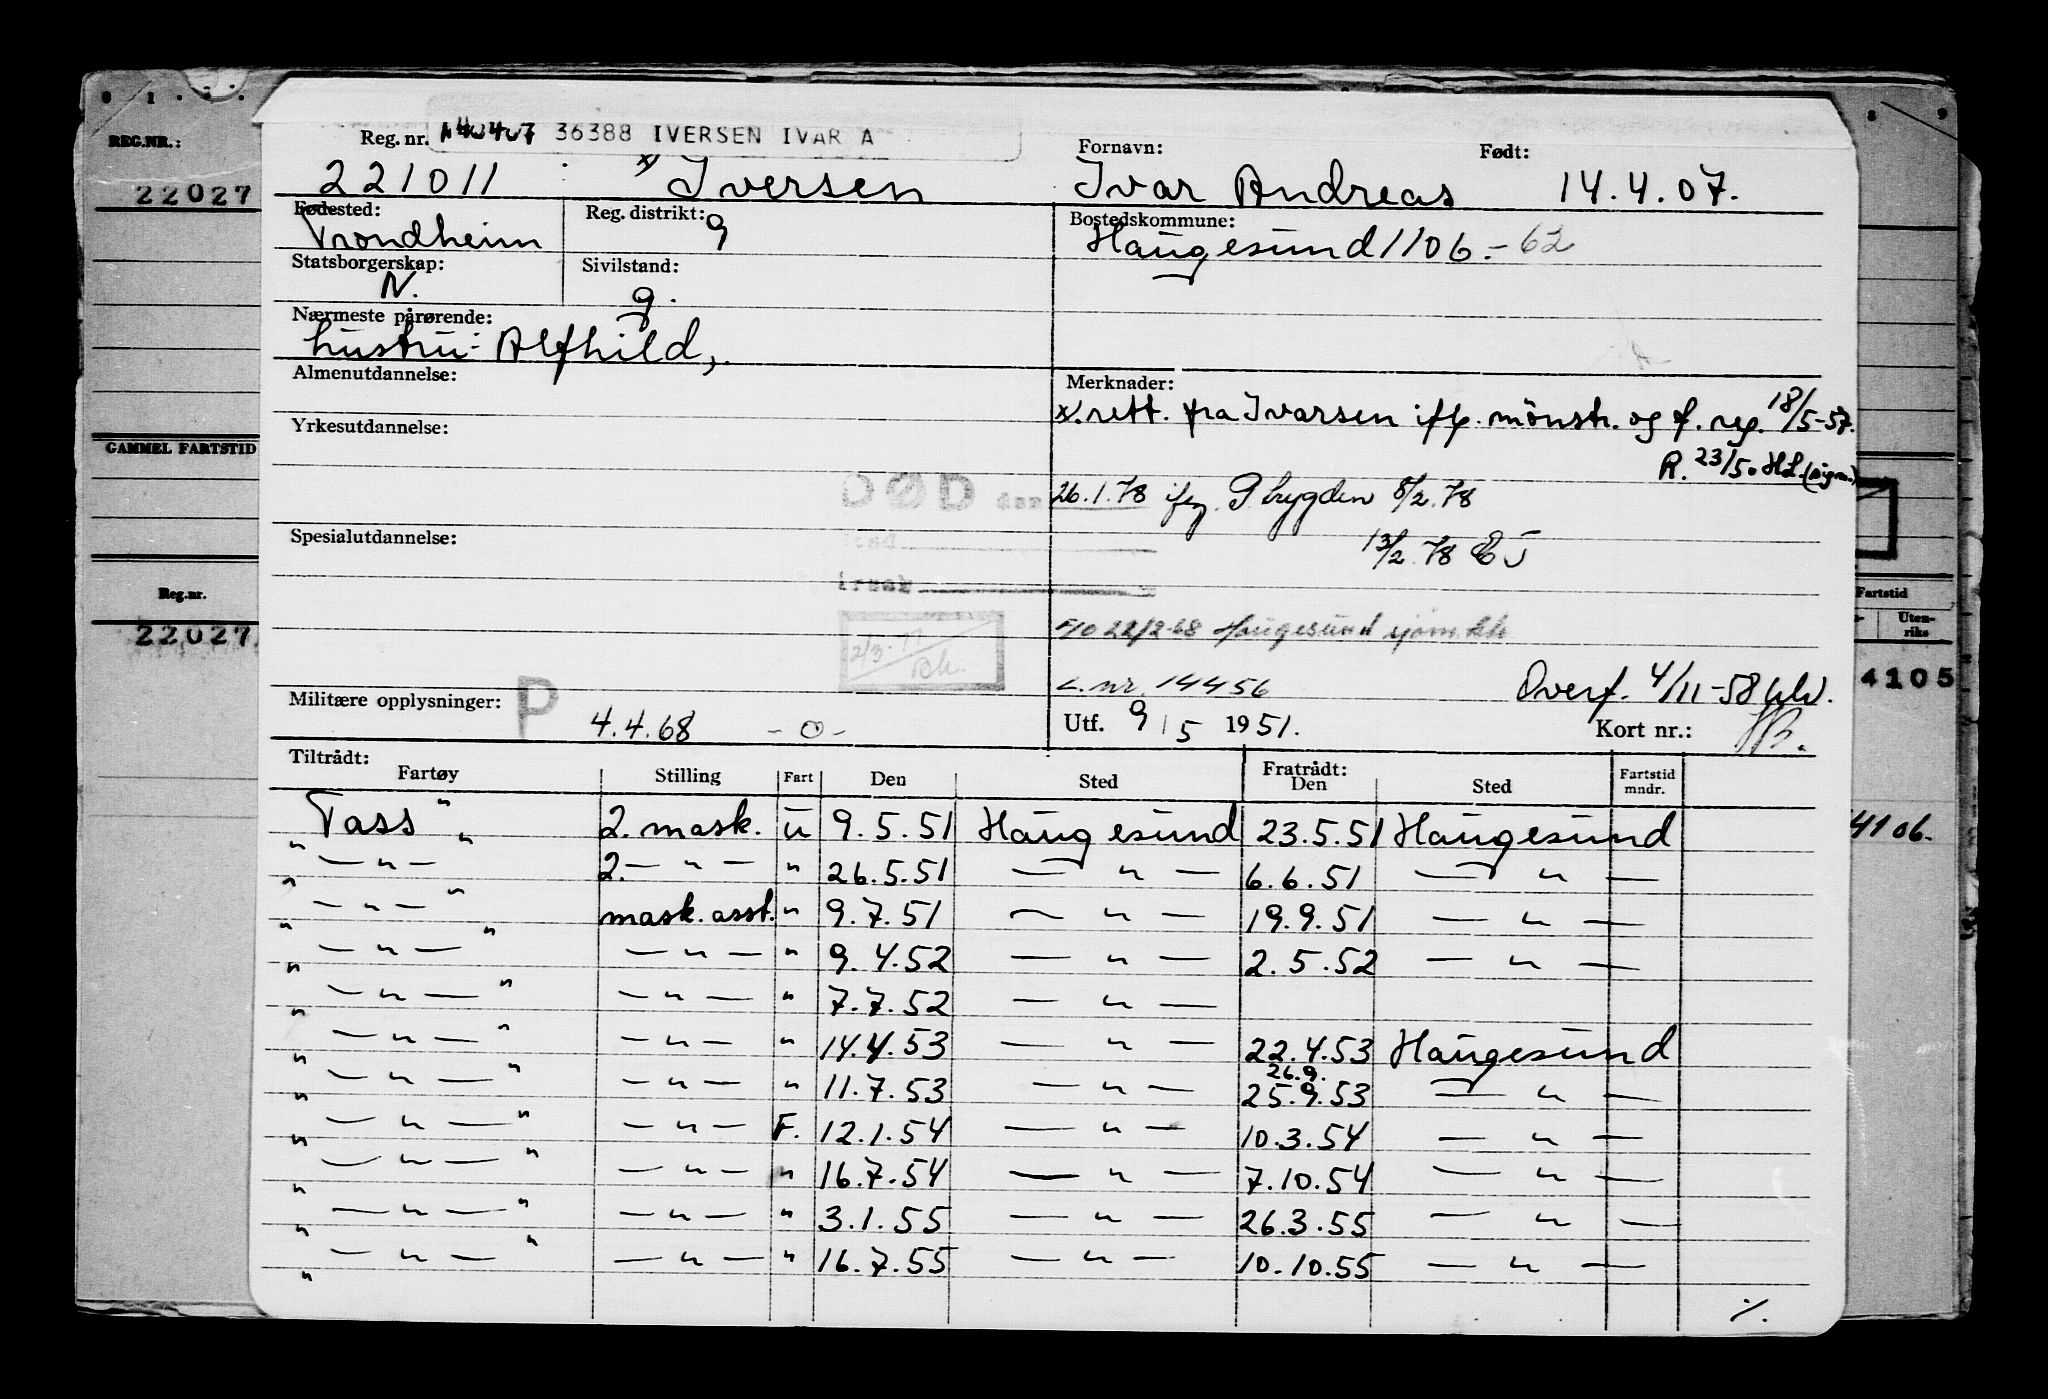 REG.NR.:
22027
GAMMEL FARTSTID
Reg.nr.
22027
8 9
Fartstid
Uten-
riks
4105
4106.
Reg. nr. 040407 36388 IVERSEN IVAR A
Fornavn: Født:
221011 x) Iversen Ivar Andreas 14.4.07.
Fødested: Reg. distrikt: Bostedskommune:
Trondheim 9 Haugesund 1106.-62
Statsborgerskap: Sivilstand:
N. g.
Nærmeste pårørende:
hustru: Alfhild,
Almenutdannelse: Merknader:
x). rett. fra Ivarsen iflg. mönstr. og f. reg. 18/5-57.
Yrkesutdannelse:
R. 23/5 HL (sign.)
DØD den 26.1.78 ifg. P.trygden 8/2.78
Spesialutdannelse: 13/2.78 EJ
sted
årsak
22/2-68 Haugesund sjøm.ktr
2/3.77
L. nr. 14456 Overf. 4/11-58
Militære opplysninger: P 4.4.68 - o -
Utf. 9/5 1951. Kort nr.:
Tiltrådt: Fratrådt:
Fartøy Stilling Fart Den Sted Den Sted Fartstid
mndr.
"Tass" 2. mask. u 9.5.51 Haugesund 23.5.51 Haugesund
" — " — " 2. — " — " 26.5.51 — " — 6.6.51 — " —
" — " — " mask. asst. " 9.7.51 — " — 19.9.51 — " —
" — " — " — " — " 9.4.52 — " — 2.5.52 — " —
" — " — " — " — " 7.7.52 — " —
" — " — " — " — " 14.4.53 — " — 22.4.53 Haugesund
26.9.
" — " — " — " — " 11.7.53 — " — 25.9.53 — " —
" — " — " — " — F. 12.1.54 — " — 10.3.54 — " —
" — " — " — " — " 16.7.54 — " — 7.10.54 — " —
" — " — " — " — " 3.1.55 — " — 26.3.55 — " —
" — " — " — " — " 16.7.55 — " — 10.10.55 — " —
"
./.